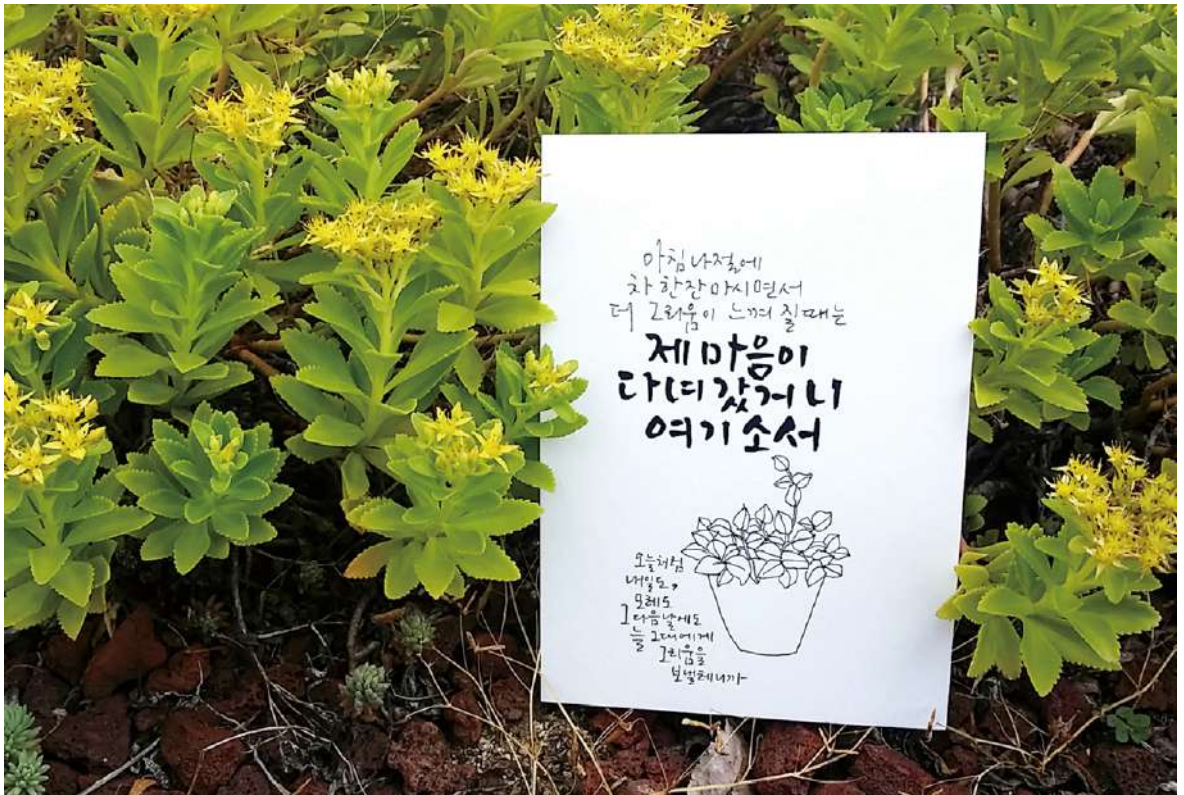 아침나절에
차 한잔 마시면서
더 그리움이 느껴 질때는
제 마음이
다녀 갔거니
여기소서
오늘처럼
내일도,
모레도
그 다음날에도
늘 그대에게
그리움을
보낼테니까